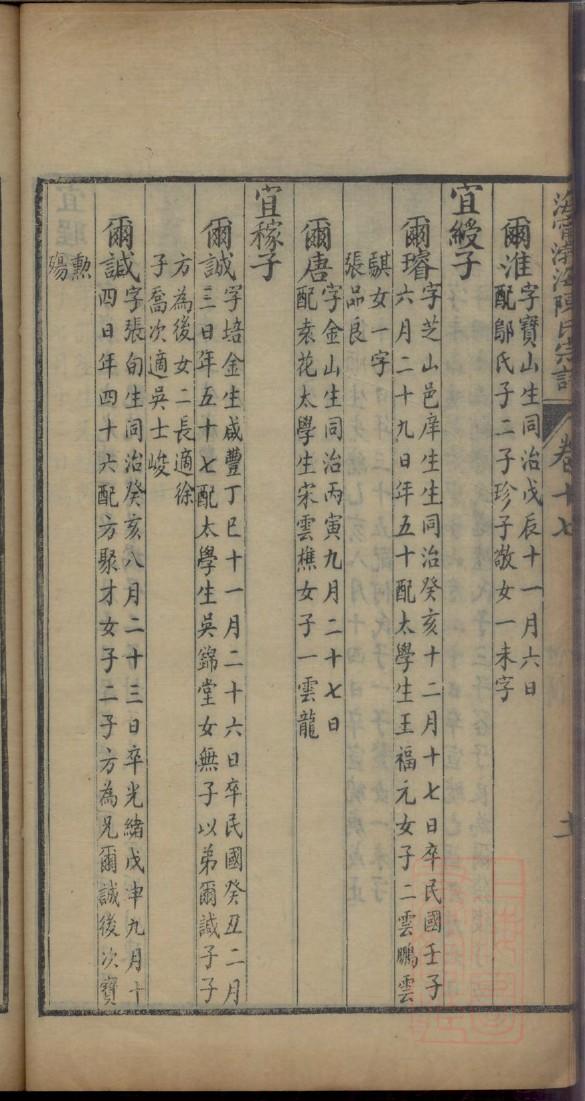 海寧渤海陳氏宗譜 卷十七
爾淮
字寶山生同治戊辰十一月六日
配鄔氏子二子珍子敬女一未字
宜綬子
爾璿
字芝山邑庠生生同治癸亥十二月十七日卒民國壬子
六月二十九日年五十配太學生王福元女子二雲鵬雲
騏女一字
張品良
爾唐
字金山生同治丙寅九月二十七日
配袁花太學生宋雲樵女子一雲龍
宜稼子
爾誠
字培金生咸豐丁巳十一月二十六日卒民國癸丑二月
三日年五十七配太學生吳錦堂女無子以弟爾諴子子
方為後女二長適徐
子喬次適吳士峻
爾諴
字張旬生同治癸亥八月二十三日卒光緒戊申九月十
四日年四十六配方聚才女子二子方為兄爾誠後次寶
勲
殤